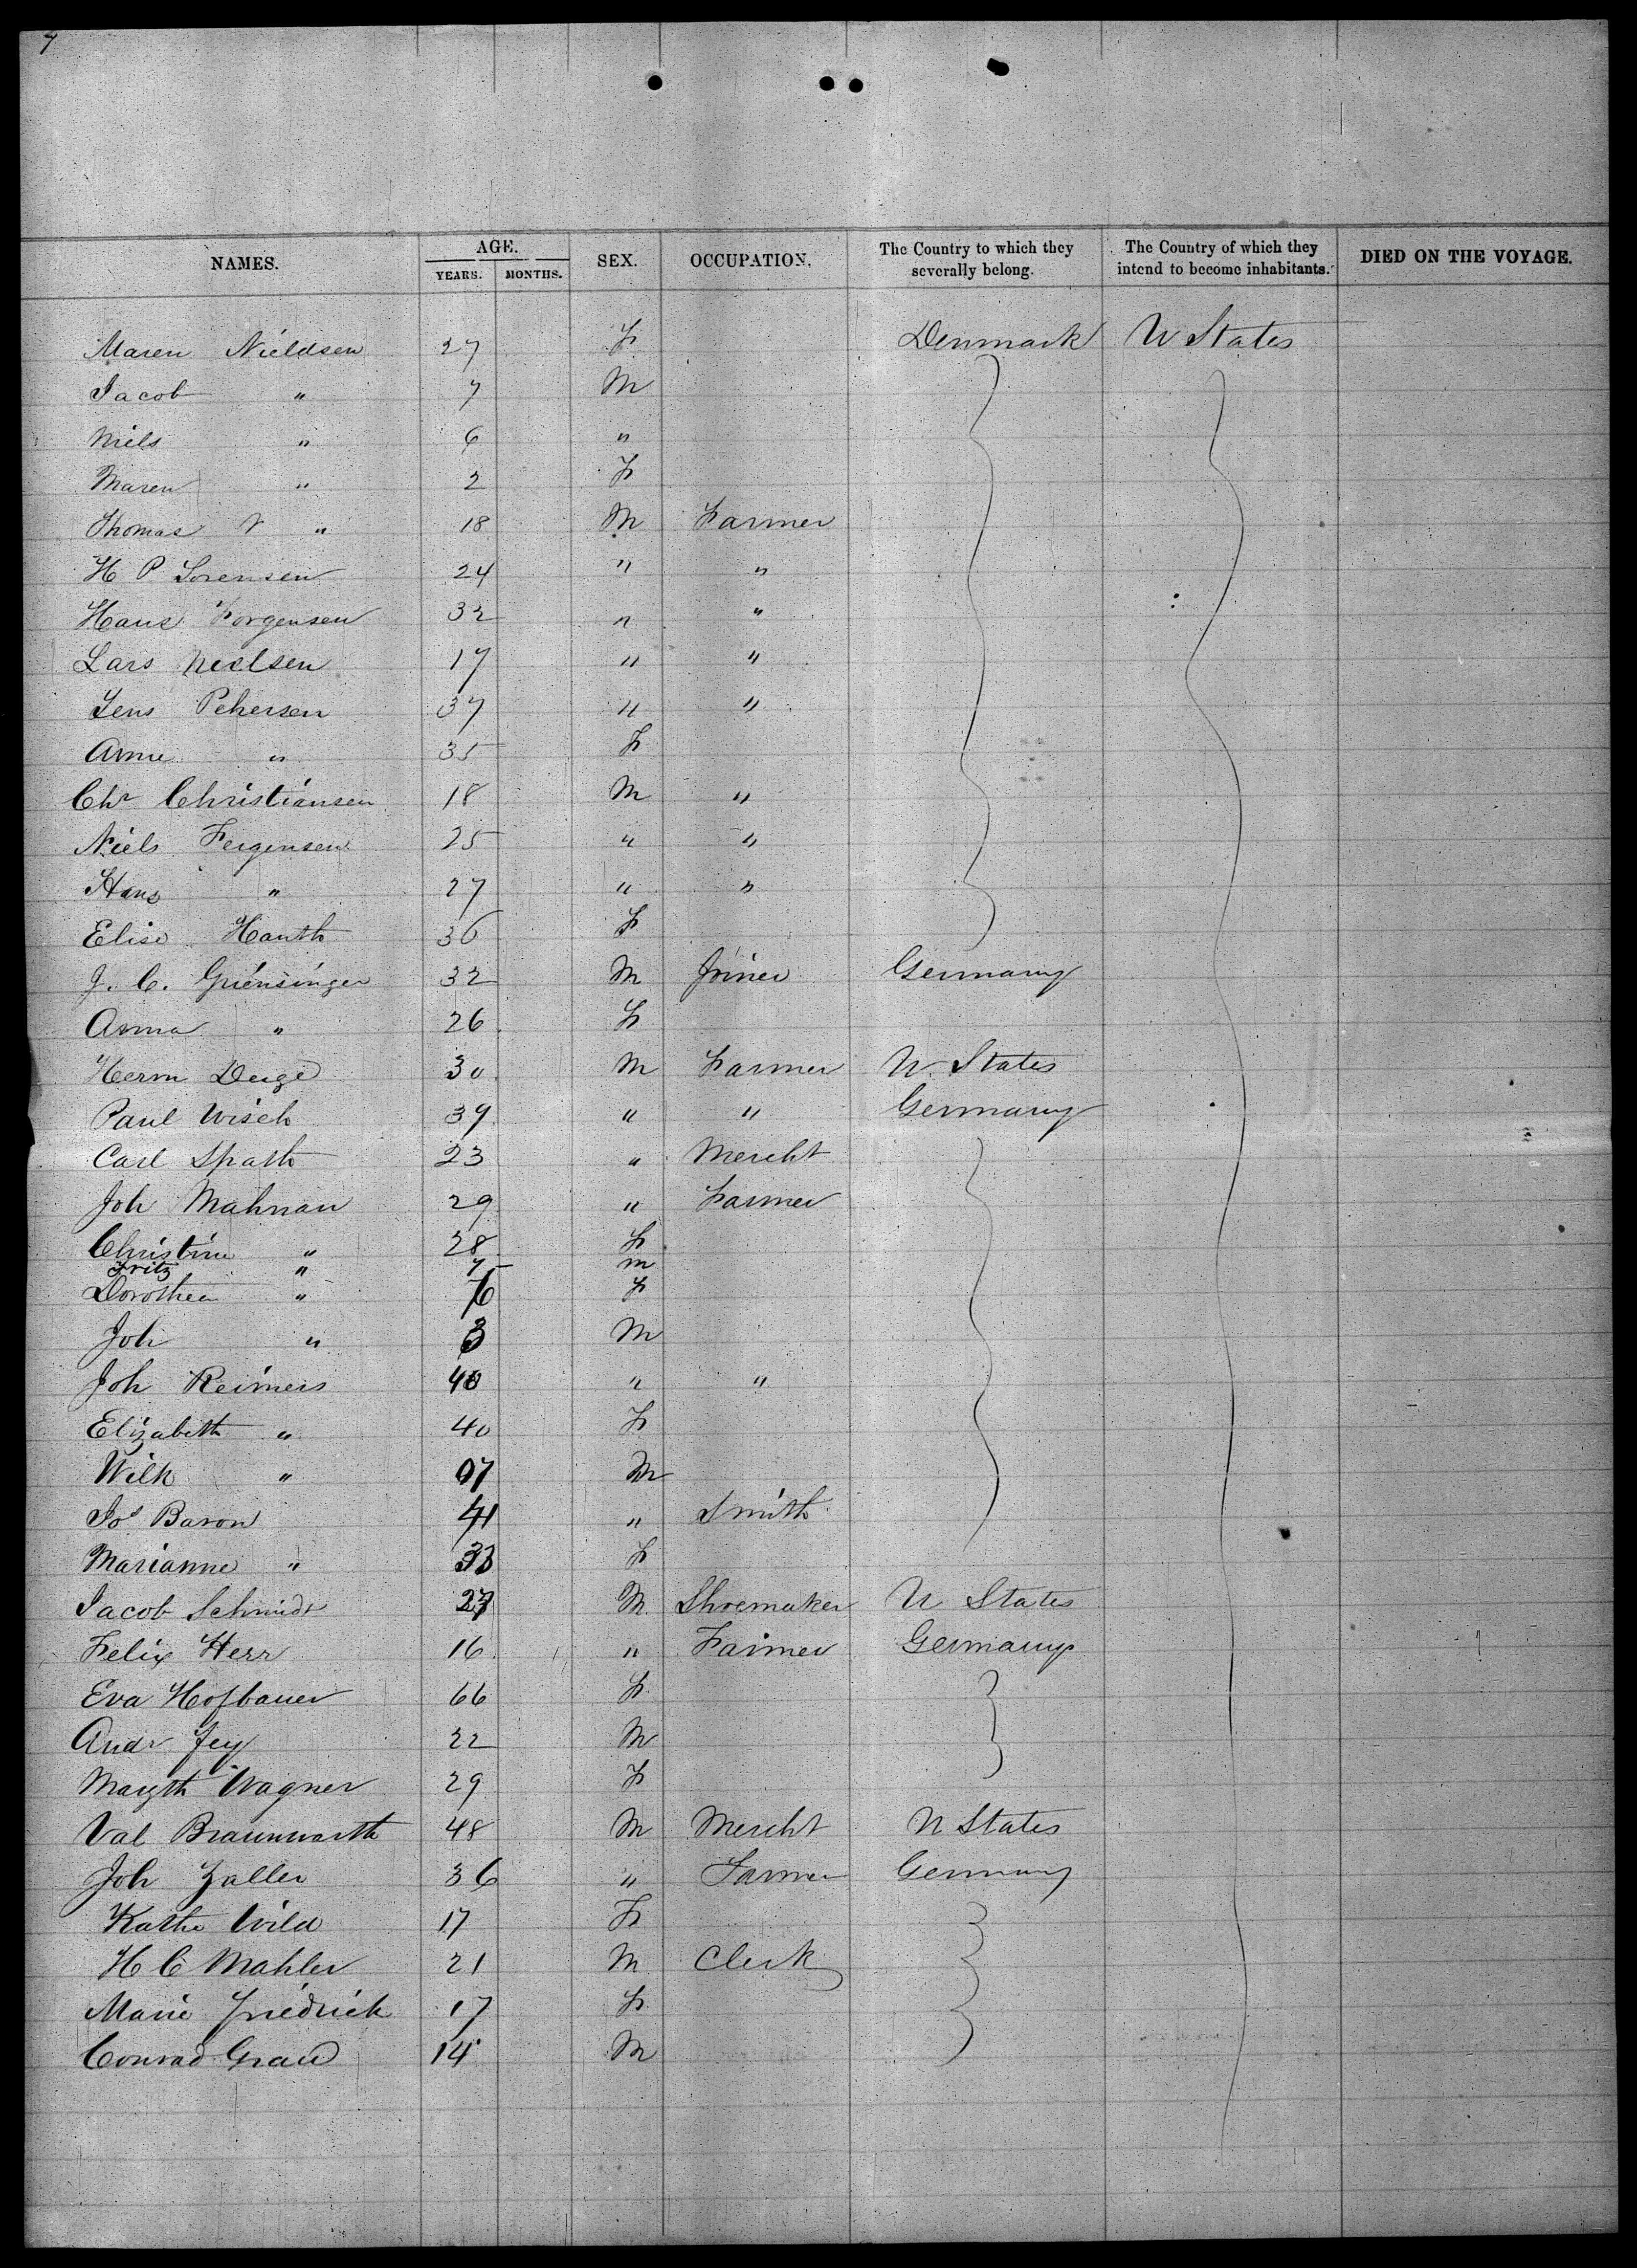 7
NAMES. AGE. YEARS. MONTHS. SEX. OCCUPATION. The Country to which they severally belong. The Country of which they intend to become inhabitants. DIED ON THE VOYAGE.
Maren Nieldsen 27 F Denmark U States
Jacob " 7 M
Niels " 6 "
Maren " 2 F
Thomas N " 18 M Farmer
H P Sorensen 24 " "
Hans Jorgensen 32 " "
Lars Nielsen 17 " "
Jens Petersen 37 " "
Anne " 35 F
Chr Christiansen 18 M "
Niels Jergensen 25 " "
Hans " 27 " "
Elise Hauth 36 F
J. C. Griensinger 32 M Joiner Germany
Anna " 26 F
Herm Deige 30 M Farmer U. States
Paul Wisch 39 " " Germany
Carl Spath 23 " Mercht
Joh Mahnan 29 " Farmer
Christine " 28 F
Fritz " 7 m
Dorothea " 6 F
Joh " 3 M
Joh Reimers 40 " "
Elizabeth " 40 F
Wilh " 07 M
Jos Baron 41 " Smith
Marianne " 33 F
Jacob Schmidt 27 M Shoemaker U States
Felix Herr 16 " Farmer Germany
Eva Hofbauer 66 F
Andr Jey 22 M
Margth Wagner 29 F
Val Braunwarth 48 M Mercht U States
Joh Zaller 36 " Farmer Germany
Kathe Wild 17 F
H C Mahler 21 M Clerk
Marie Friedrich 17 F
Conrad Grau 14 M